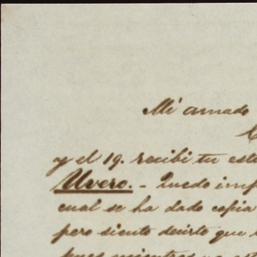 Mi amado
y el 19. recibi tu
Uvero. - Puedo
cual se ha dado copia
pero siento decirte que
pues mientras